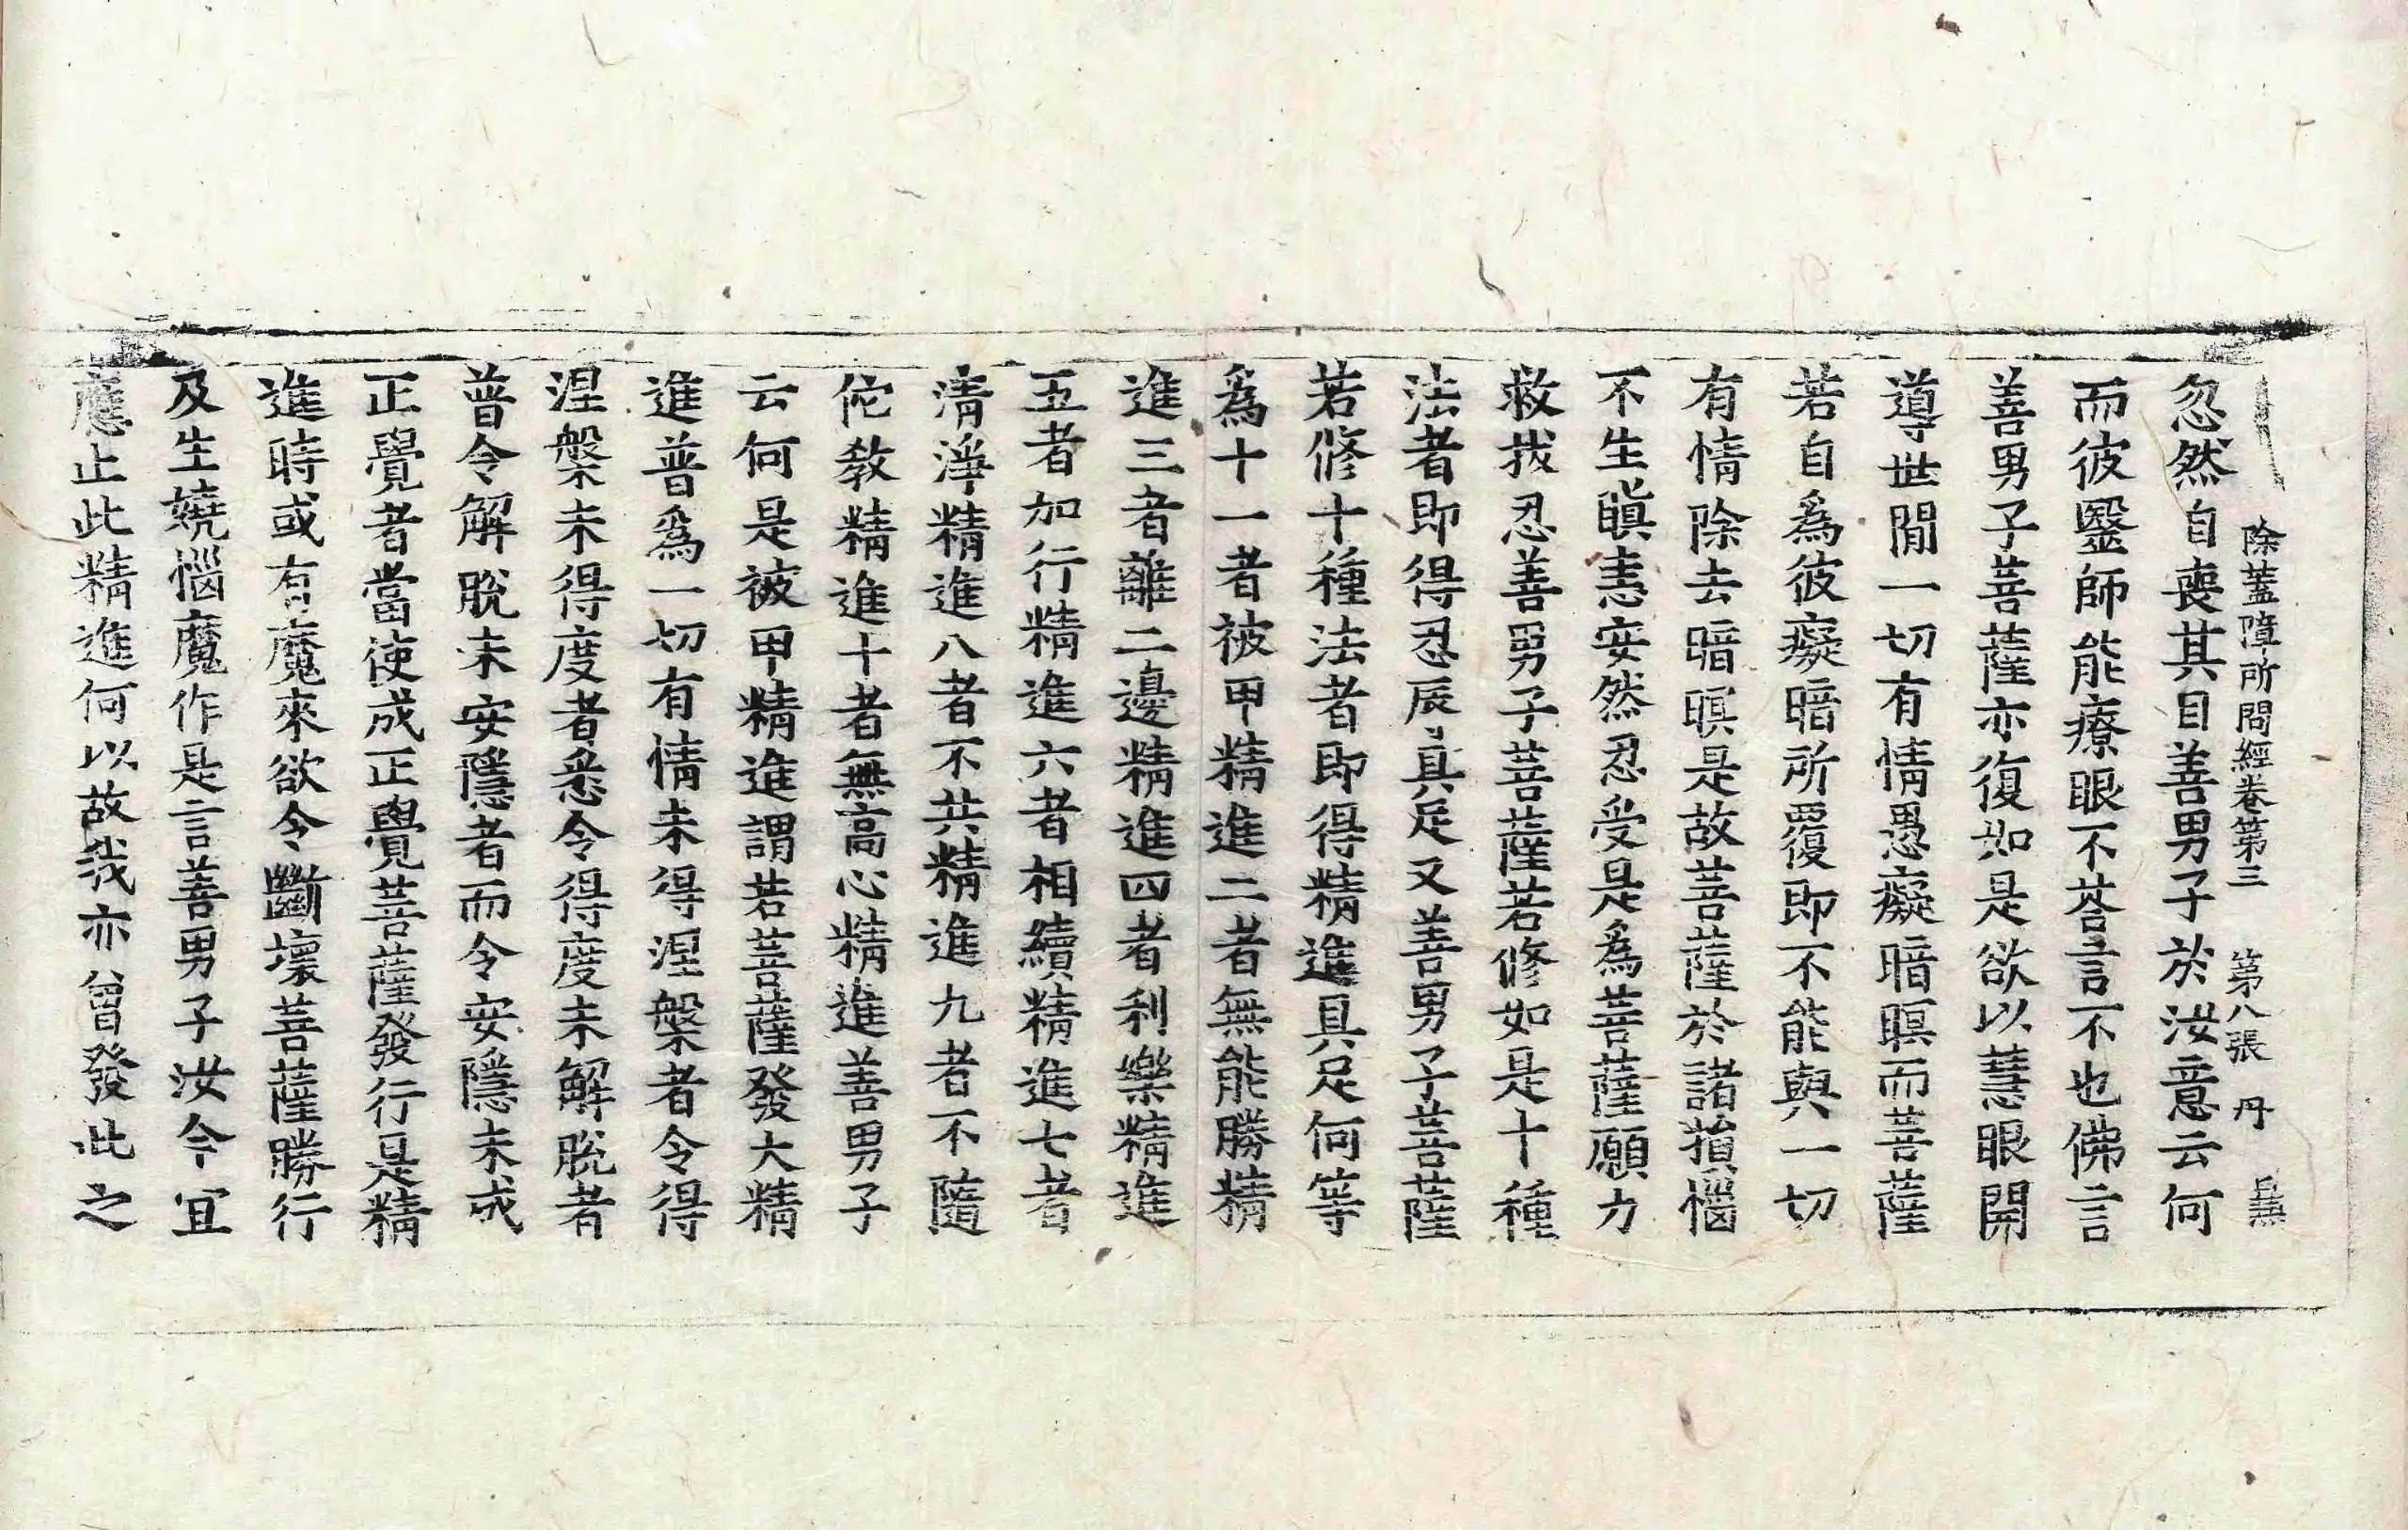 除蓋障所問經卷第三 第八張 丹
忽然自喪其目善男子於汝意云何
而彼醫師能療眼不荅言不也佛言
善男子菩薩亦復如是欲以慧眼開
導世間一切有情愚癡暗暝而菩薩
若自爲彼癡暗所覆即不能與一切
有情除去暗暝是故菩薩於諸損惱
不生瞋恚安然忍受是爲菩薩願力
救拔忍善男子菩薩若修如是十種
法者即得忍辱具足又善男子菩薩
若修十種法者即得精進具足何等
爲十一者被甲精進二者無能勝精
進三者離二邊精進四者利樂精進
五者加行精進六者相續精進七者
清淨精進八者不共精進九者不隨
佗教精進十者無高心精進善男子
云何是被甲精進謂若菩薩發大精
進普爲一切有情未得涅槃者令得
涅槃未得度者悉令得度未解脫者
普令解脫未安隱者而令安隱未成
正覺者當使成正覺菩薩發行是精
進時或有魔來欲令斷壞菩薩勝行
及生嬈惱魔作是言善男子汝今宜
應止此精進何以故我亦曾發此之